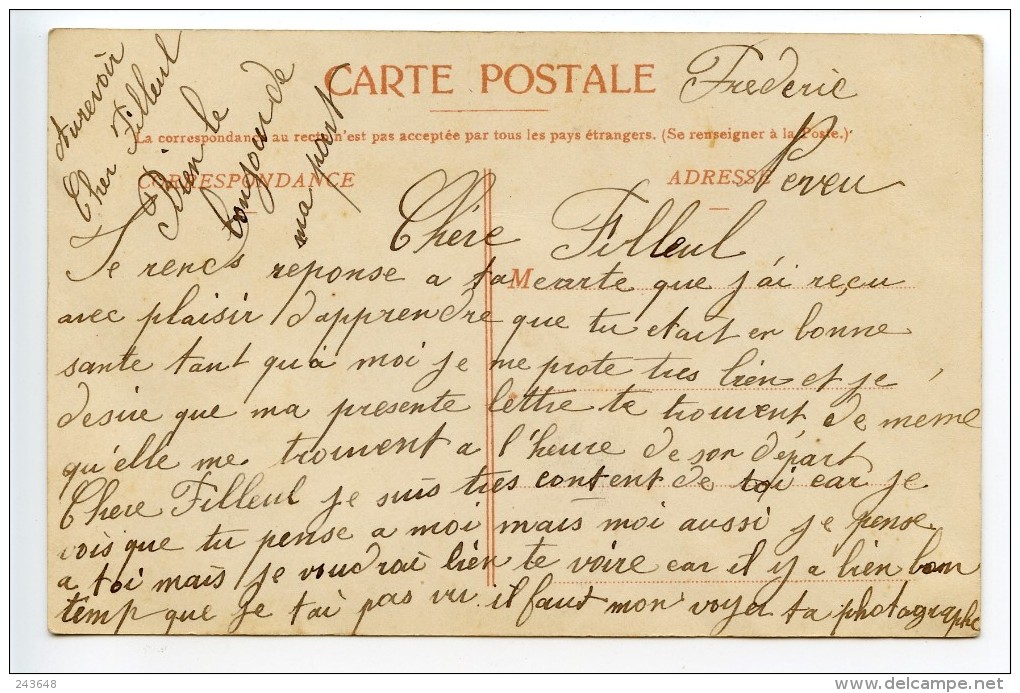 CARTE POSTALE
La correspondance au recto n'est pas acceptée par tous les pays étrangers. (Se renseigner à la Poste.)
CORRESPONDANCE
ADRESSE
M
Frederic
Peveu
Chére Filleul
Je rends reponse a ta carte que j'ai reçu
avec plaisir d'apprendre que tu etait en bonne
sante tant qu'a moi je me prote tres bien et je
desire que ma presente lettre te trouvent de même
qu'elle me trouvent a l'heure de son départ
Chere Filleul je suis tres content de toi car je
vois que tu pense a moi mais moi aussi je pense
a toi mais je voudrai bien te voire car il y a bien bon
temp que je tai pas vu il faud mon voyer ta photographe
Aurevoir
Cher Filleul
Bien le
bonjour de
ma part
243648
delcampe.net